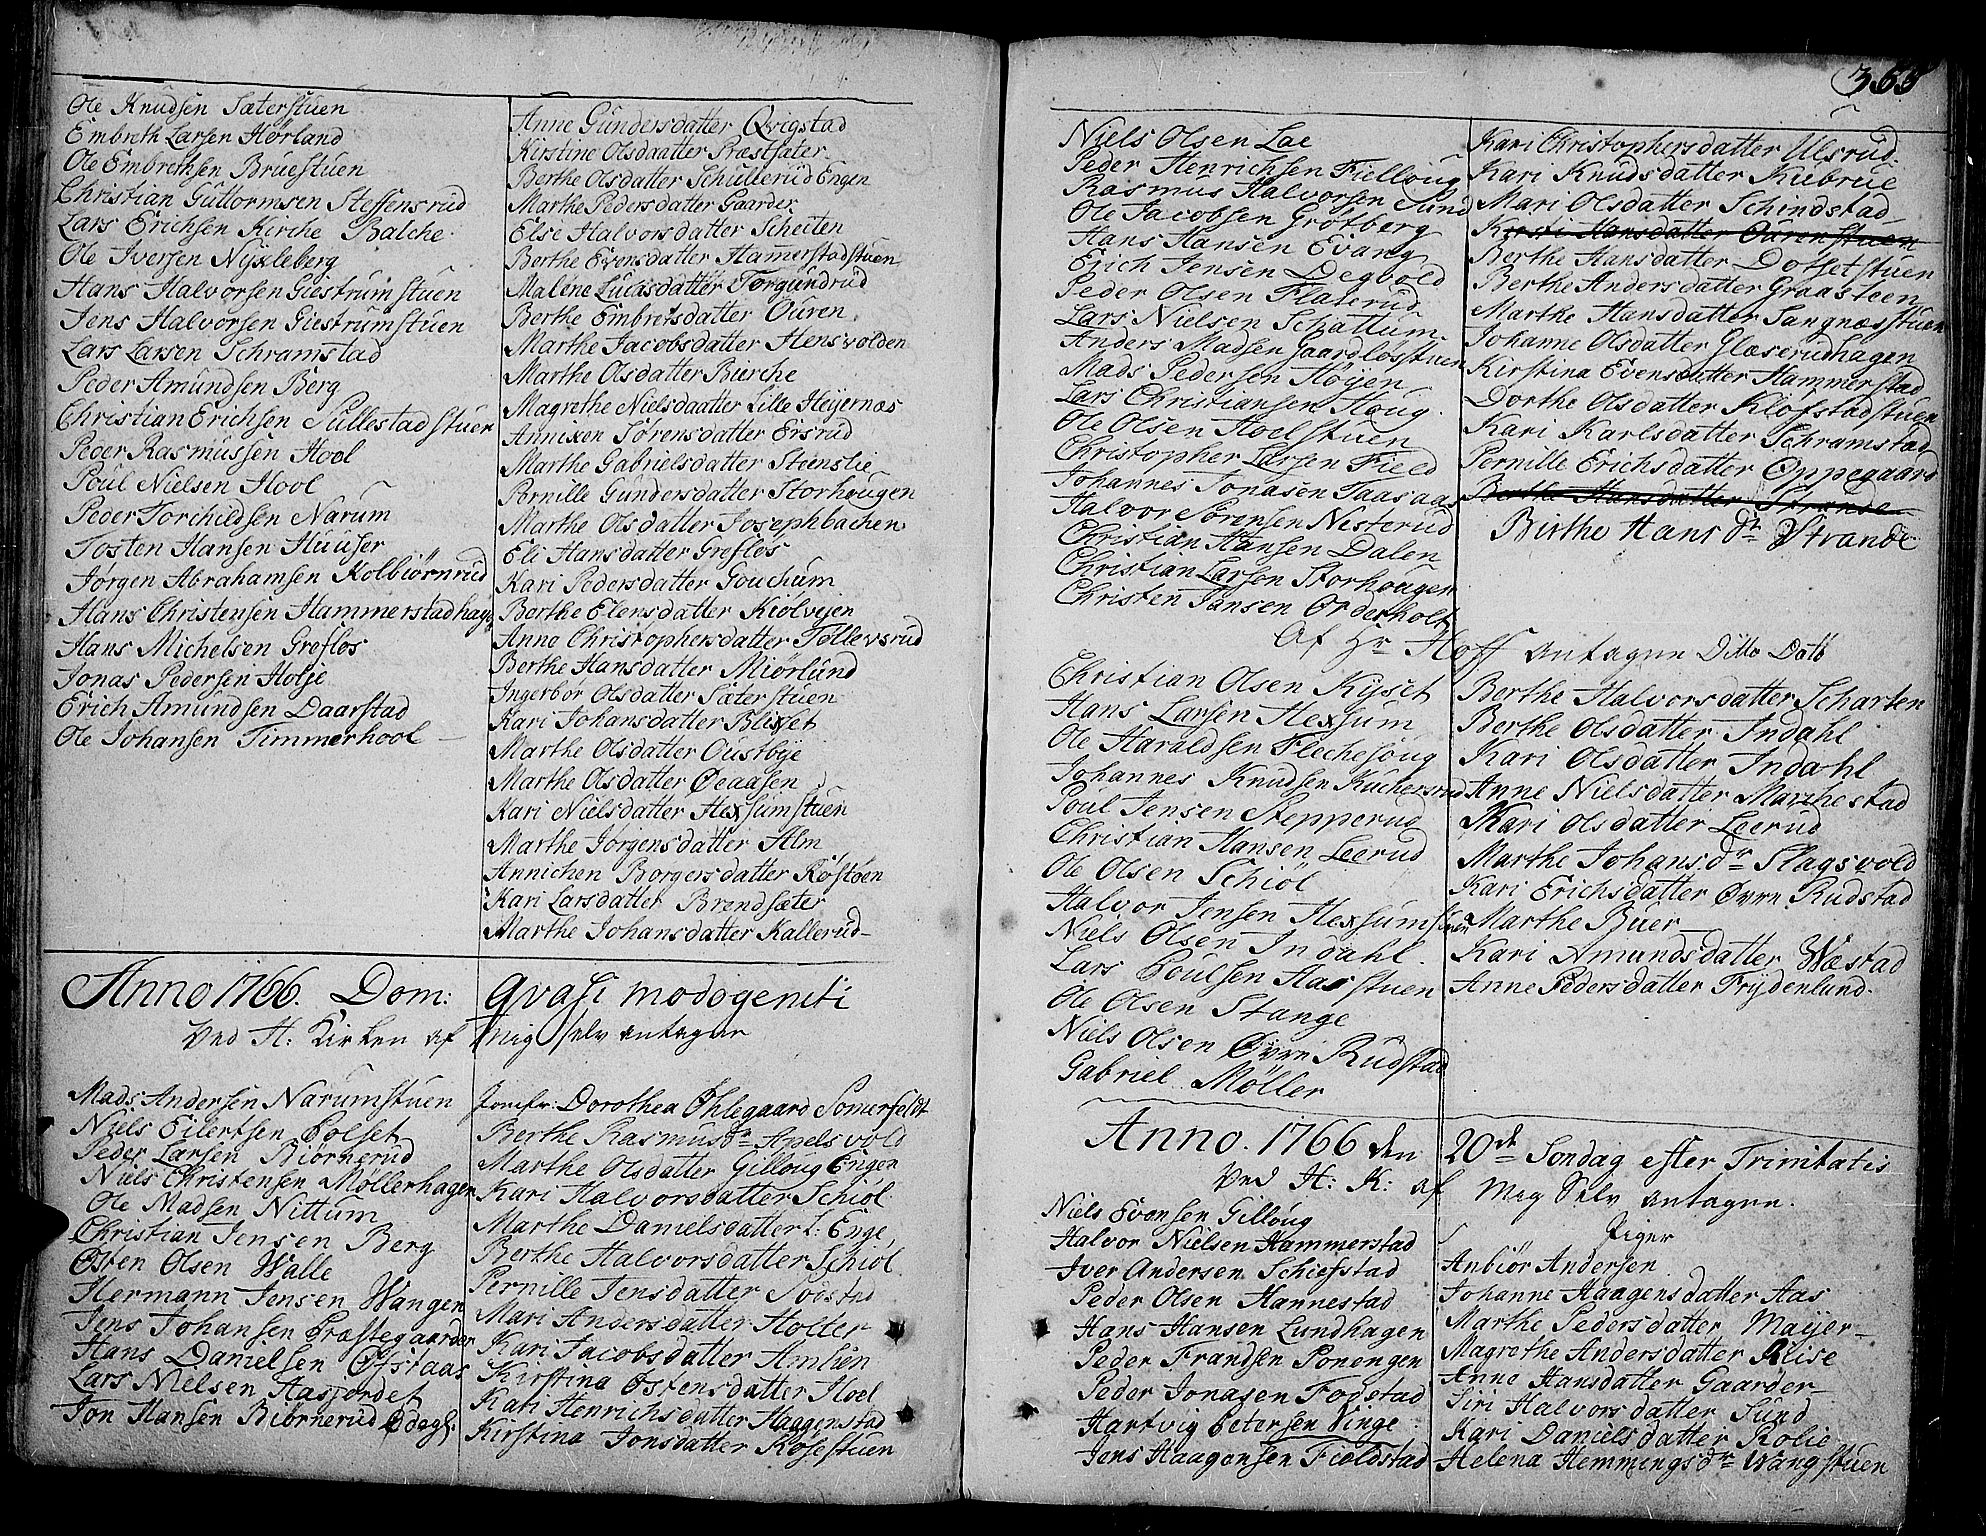 Ole Knudsen Sæterstuen
Embreth Larsen Hörland
Ole Embrethsen Bruestuen
Christian Guttormsen Steffensrud
Lars Erichsen Kirche Balche
Ole Iversen Nyxleberg
Hans Halvorsen Giestrumstuen
Jens Halvorsen Giestrumstuen
Lars Larsen Schramstad
Peder Amundsen Berg
Christian Erichsen Sullestadstuen
Peder Rasmussen Hoel
Poul Nielsen Hool
Peder Torchildsen Narum
Tosten Hansen Huuser
Jørgen Abrahamsen Kolbiørnrud
Hans Christensen Hammerstadhagn
Hans Michelsen Grefløs
Jonas Pedersen Holje
Erich Amundsen Daarstad
Ole Johansen Timmerhool
Anne Gundersdatter Qvigstad
Kirstine Olsdaatter Præstsater
Berthe Olsdatter Schullerud Engen
Marthe Pedersdatter Gaarder
Else Halvorsdatter Scheiten
Berthe Evensdatter Hamerstadstuen
Malene Lucasdatter Torgundrud
Berthe Embretsdatter Ouren
Marthe Jacobsdatter Hensvolden
Marthe Olsdatter Bierche
Magrethe Nielsdaatter Lille Heyernæs
Annixen Sørensdatter Eisrud
Marthe Gabrielsdatter Steenslie
Pernille Gundersdatter Storhougen
Marthe Olsdatter Josephbachen
Eli Hansdatter Grefløs
Kari Pedersdatter Gouchum
Berthe Elensdatter Kiolvejen
Anne Christophersdatter Tollevsrud
Berthe Hansdatter Miörlund
Ingerbor Olsdatter Säterstuen
Kari Johansdatter Blixset
Marthe Olsdatter Oustbye
Marthe Olsdatter Øeaasen
Kari Nielsdatter Hexsumstuen
Marthe Jörgensdatter Alm
Annichen Borgersdatter Røstøen
Kari Larsdatter Brendsæter
Marthe Johansdatter Kallerud
Anno 1766. Dom: Qvasi modogeniti
Ved H: Kirken af mig selv antagen
Mads Andersen Narumstuen
Niels Eilertsen Colset
Peder Larsen Biörnerud
Niels Christensen Møllerhagen
Ole Madsen Nittum
Christian Jensen Berg
Osten Olsen Walle
Hermann Jensen Wangen
Jens Johansen Præstegaarden
Hans Danielsen Ofstaas
Lars Nielsen Aasjordet
Jon Hansen Biörnerud Ødegh.
Jomfr: Dorothea Ohlegaard Somerfeldt
Berthe Rasmusdr Apelsvold
Marthe Olsdatter Gilloug Engen
Kari Halvorsdatter Schiöl
Marthe Danielsdatter L: Enge,
Berthe Halvorsdatter Schiol
Pernille Jensdatter Sodstad
Mari Andersdatter Holter
Kari Jacobsdatter Amlien
Kirstina Ostensdatter Hoel
Kari Henrichsdatter Haggenstad
Kirstina Jonsdatter Rosestuen
365
Niels Olsen Lae
Peder Henrichsen Fielloug
Rasmus Halvorsen Sund
Ole Jacobsen Grötberg
Hans Hansen Evang
Erich Jensen Degvold
Peder Olsen Flaterud
Lars Nielsen Schattum
Anders Madsen Gaardløsstuen
Mads Pedersen Høyen
Lars Christiansen Houg
Ole Olsen Hoelstuen
Christopher Larsen Field
Johannes Jonasen Taasaas
Halvor Sørensen Nesterud
Christian Hansen Dalen
Christian Larson Storhougen
Christen Jansen Orderholt
Kari Christophersdatter Ulsrud
Kari Knudsdatter Kubrue
Mari Olsdatter Schindstad
Kirsti Hansdatter Ourenstuen
Berthe Hansdatter Dotsetstuen
Berthe Andersdatter Graasteen
Marthe Hansdatter Sangnæsstuen
Johanne Olsdatter Glæserudhagen
Kirstina Evensdatter Hammerstad
Dorthe Olsdatter Klofstadstuen
Kari Karlsdatter Schramstad
Pernille Erichsdatter Oppegaard
Berthe Hansdatter Strande
Birthe Hansdr Strande
Af Hr Hoff antagen Ditto Dato
Christian Olsen Kyset
Hans Larsen Hexsum
Ole Haraldsen Flechesoug
Johannes Knudsen Kuchersrud
Poul Jensen Stepperud
Christian Hansen Leerud
Ole Olsen Schiol
Halvor Jensen Hexsumstuen
Niels Olsen Indahl
Lars Poulsen Haistuen
Ole Olsen Stange
Niels Olsen Øvre Rudstad
Gabriel Møller
Berthe Halvorsdatter Scharten
Berthe Olsdatter Indahl
Kari Olsdatter Indahl
Anne Nielsdatter Marchestad
Kari Olsdatter Leerud
Marthe Johansdr Slagsvold
Kari Erichsdatter Øvre Rudstad
Marthe Buer
Kari Amundsdatter Wæstad
Anne Pedersdatter Frydenlund
Anno. 1766 den 20de Søndag efter Trinitatis
Ved H: K: af Mig Selv antagen.
Niels Evensen Gilloug
Halvor Nielsen Hammerstad
Iver Andersen Schiefstad
Peder Olsen Hannestad
Hans Hansen Lundhagen
Peder Frandsen Ponengen
Peder Jonasen Fodstad
Hartvig Petersen Vinge
Jens Haagensen Fieldstad
Piger
Anbiør Andersen
Johanne Haagensdatter Aas
Marthe Pedersdatter Meyer
Magrethe Andersdatter Riise
Anne Hansdatter Gaarder
Siri Halvorsdatter Sund
Kari Danielsdatter Rolie
Helena Hemmingsdr Wangstuen